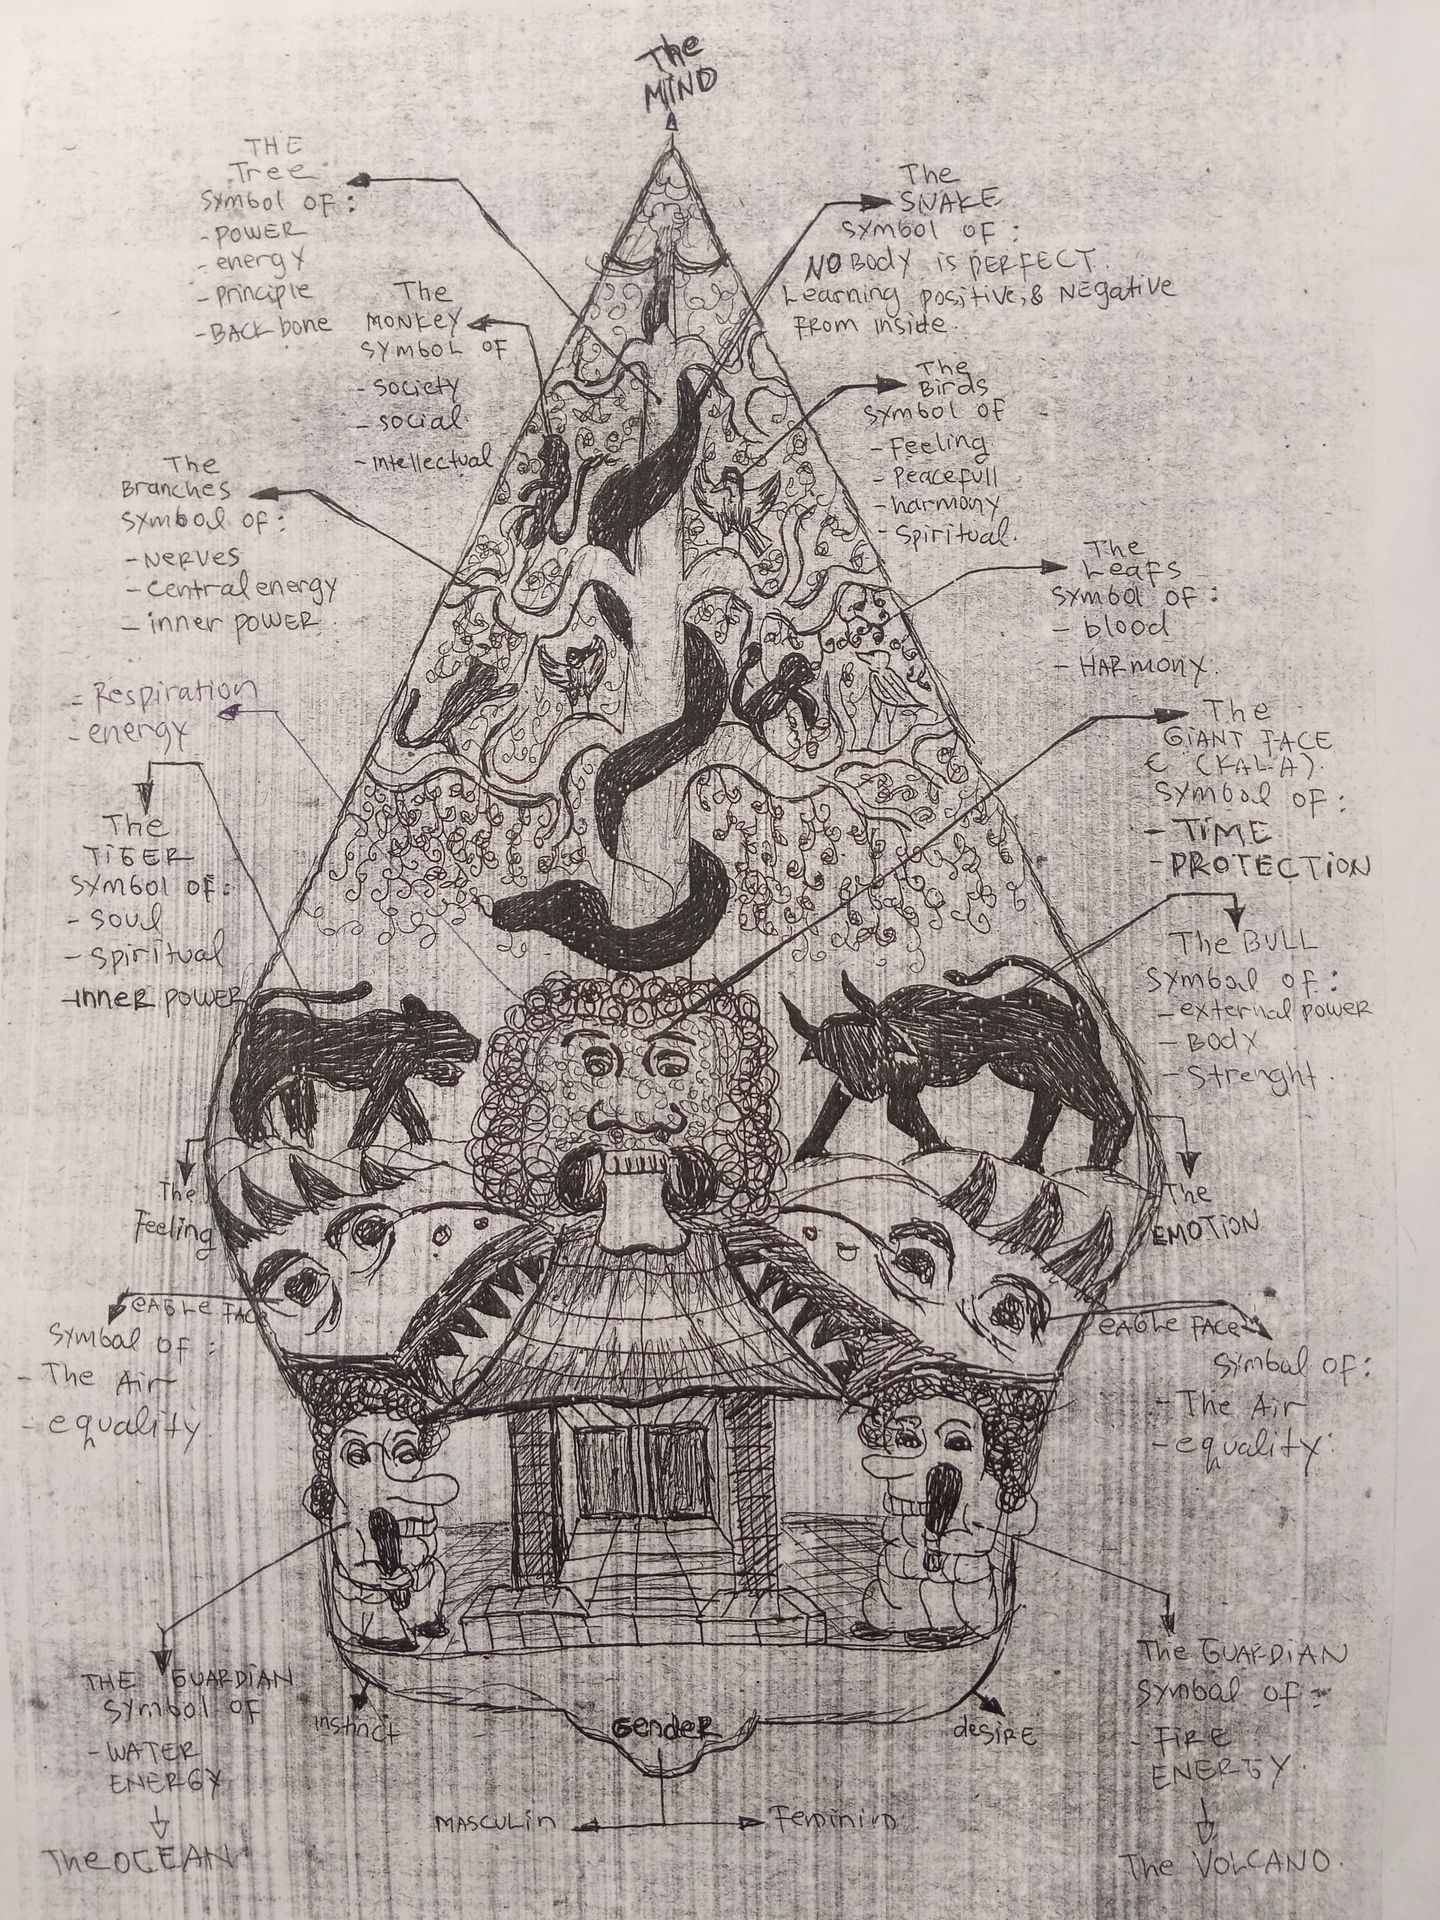 The
MIND
THE
Tree
Symbol OF :
- POWER
- energy
- Principle
- BACK bone
The
SNAKE
SYMBOL OF :
NO BODY is PERFECT.
Learning positive, & NEgative
From inside.
The
MONKEY
SYMBOL OF
- Society
- Social
- intellectual
The
Birds
Symbol OF
- Feeling
- Peacefull
- harmony
- Spiritual.
The
Branches
Symbol OF :
- NERVES
- Central energy
- inner POWER
The
Leafs
Symbol OF :
- blood
- HARMONY.
- Respiration
- energy
The
GIANT FACE
(KALA).
Symbol OF :
- TIME
- PROTECTION
The
TIGER
Symbol OF :
- Soul
- Spiritual
- inner POWER
The BULL
Symbol OF :
- external power
- BODY
- Strenght.
The
Feeling
The
EMOTION
eagle FACE
Symbol OF :
- The Air
- equality
eagle FACE
Symbol OF :
- The Air
- equality.
THE GUARDIAN
Symbol OF
- WATER
ENERGY
The OCEAN
instinct
Gender
desire
MASCULIN
Feminim
The GUARDIAN
Symbol OF -
- FIRE
ENERGY.
The VOLCANO.